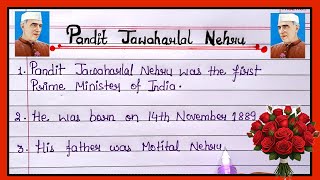 Pandit Jawaharlal Nehru
1. Pandit Jawaharlal Nehru was the first
Prime Minister of India.
2. He was born on 14th November 1889
3. His father was Motilal Nehru